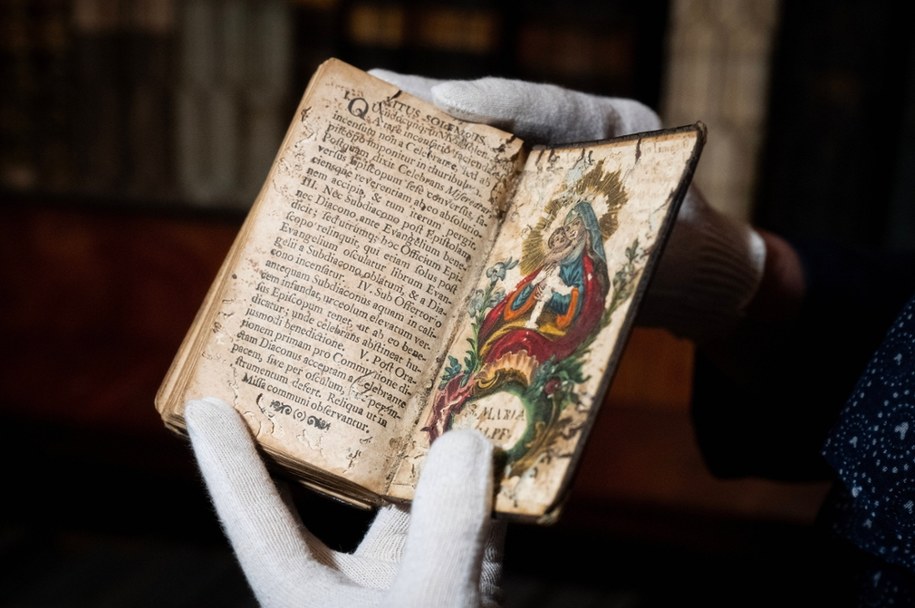 RITUS SOLEMNIS.
incensum non à Celebrante, sed
piscopo imponitur in thuribulo.
Postquam dixit Celebrans Misereatur
versùs Episcopum sese convertit, fa-
ciensque reverentiam ab eo absolutio-
nem accipit, & tum iterum pergit.
III. Nec Subdiacono, post Epistolam,
nec Diacono, ante Evangelium bene-
dicit; sed utrumq; hoc Officium Epi-
scopo relinquit, qui etiam solus post
Evangelium osculatur librum Evan-
gelii à Subdiacono oblatum, & a Dia-
cono incensatur. IV. Sub Offertorio
antequam Subdiaconus aquam in cali-
cem infundat, urceolum elevatum ver-
sus Episcopum tenet, ut ab eo bene-
dicatur; unde celebrans abstineat hu-
iusmodi benedictione. V. Post Ora-
tionem primam pro Communione di-
ctam Diaconus acceptam à Celebrante
pacem, sive per osculum, sive per in-
strumentum defert. Reliqua ut in
Missa communi observantur.
MARIA